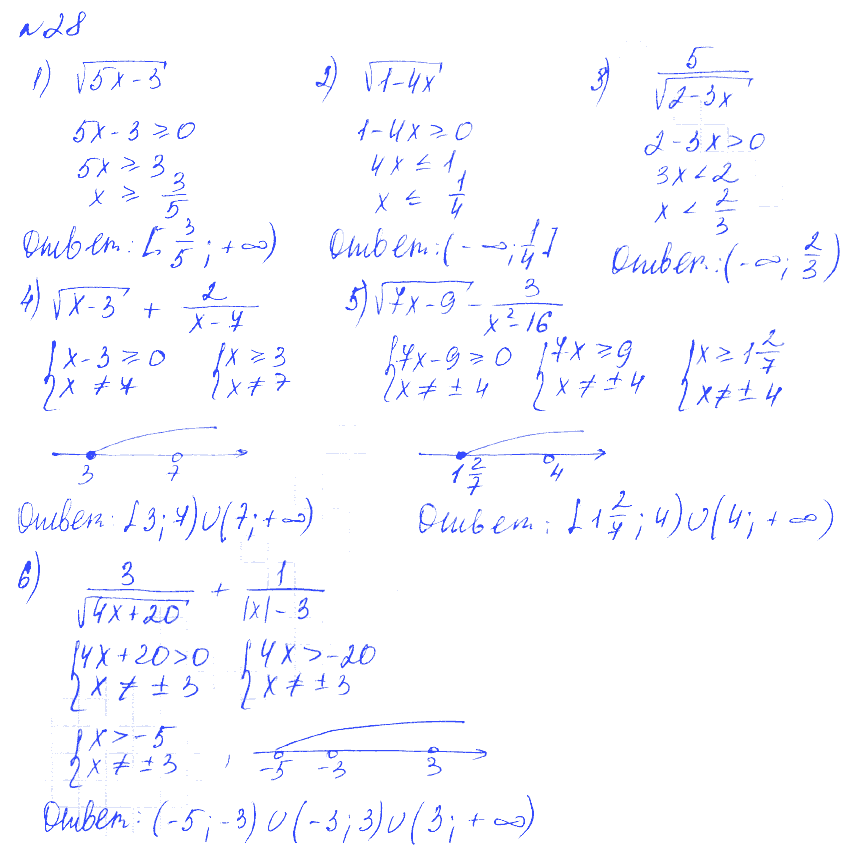 №28
1) √(5x-3)
5x-3 ≥ 0
5x ≥ 3
x ≥ 3/5
Ответ: [3/5; +∞)
2) √(1-4x)
1-4x ≥ 0
4x ≤ 1
x ≤ 1/4
Ответ: (-∞; 1/4]
3) 5/√(2-3x)
2-3x > 0
3x < 2
x < 2/3
Ответ: (-∞; 2/3)
4) √(x-3) + 2/(x-7)
{x-3 ≥ 0 {x ≥ 3
{x ≠ 7 {x ≠ 7
3 7
Ответ: [3; 7)∪(7; +∞)
5) √(7x-9) - 3/(x²-16)
{7x-9 ≥ 0 {7x ≥ 9 {x ≥ 1 2/7
{x ≠ ±4 {x ≠ ±4 {x ≠ ±4
1 2/7 4
Ответ: [1 2/7; 4)∪(4; +∞)
6) 3/√(4x+20) + 1/(|x|-3)
{4x+20>0 {4x>-20
{x ≠ ±3 {x ≠ ±3
{x>-5
{x ≠ ±3 ,
-5 -3 3
Ответ: (-5; -3)∪(-3; 3)∪(3; +∞)